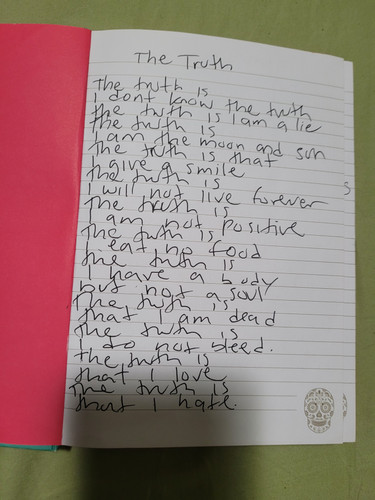 The Truth
The truth is
I dont know the truth
the truth is I am a lie
the truth is
I am the moon and sun
the truth is that
I give a smile
the truth is
I will not live forever
The truth is
I am not positive
the truth is
I eat no food
the truth is
I have a body
but not a soul
The truth is
that I am dead
the truth is
I do not bleed.
the truth is
that I love
The truth is
that I hate.
s